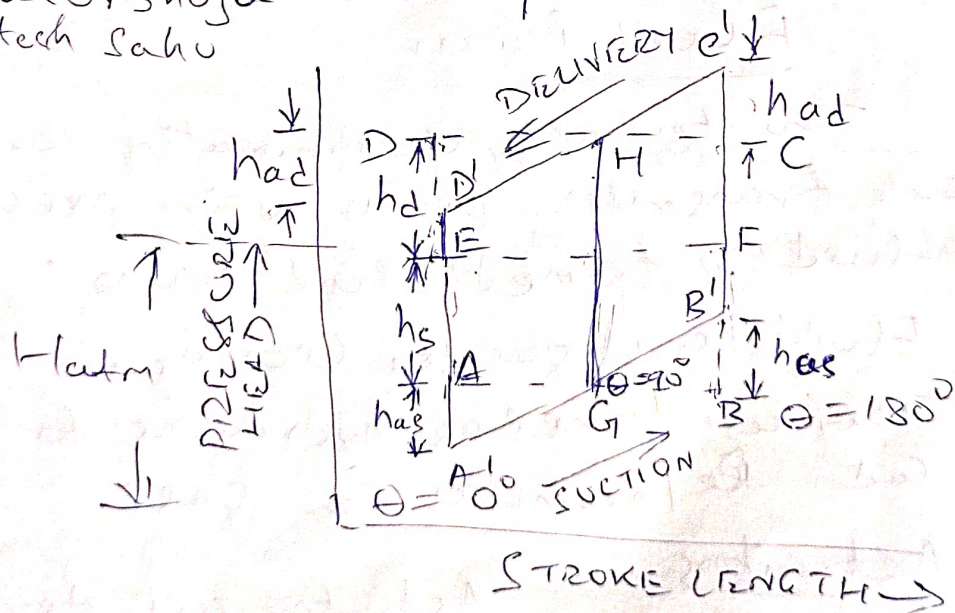 tesh Sahu
DELIVERY
C'
had
had
D
H
C
hd
D'
E
F
PRESSURE
HEAD
Hatm
hs
A
B'
has
θ=90°
has
G
B
θ = 180°
A'
θ = 0°
SUCTION
STROKE LENGTH